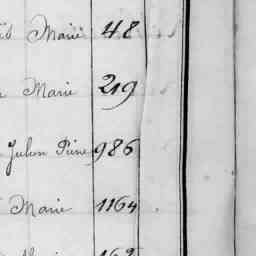 Marie 48
Marie 219
Julien Pierre 986
Marie 1164